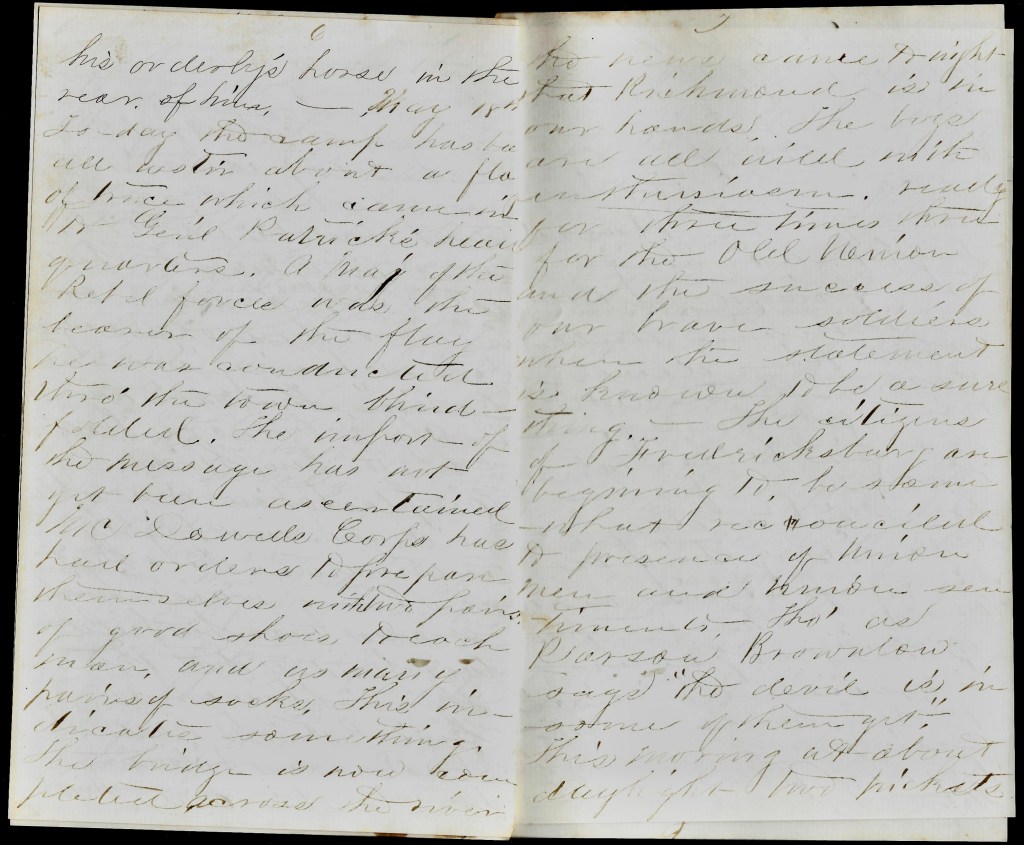 6
his orderly's horse in the
rear. of him. — May
To-day the camp has be
all astir about a fla
of truce which came in
to Gen'l Patrick's head
quarters. A Maj of the
Rebel forces was the
bearer of the flag
he was conducted
thro' the town blind-
folded. The import of
the message has not
yet been ascertained
McDowells Corps has
had orders to prepare
themselves with two pairs
of good shoes to each
man, and as many
pairs of socks. This in-
dicates something.
The bridge is now com
pleted across the river
7
the news came to night
that Richmond is in
our hands. The boys
are all wild with
enthusiasm. ready
for three times three
for the Old Union
and the success of
our brave soldiers
when the statement
is known to be a sure
thing. — The citizens
of Fredericksburg are
beginning to, be some
-what reconciled
to presence of Union
men and Union sen
timents Tho' as
Parson Brownlow
says "the devil is in
some of them yet"
This moring at about
daylight two pickets